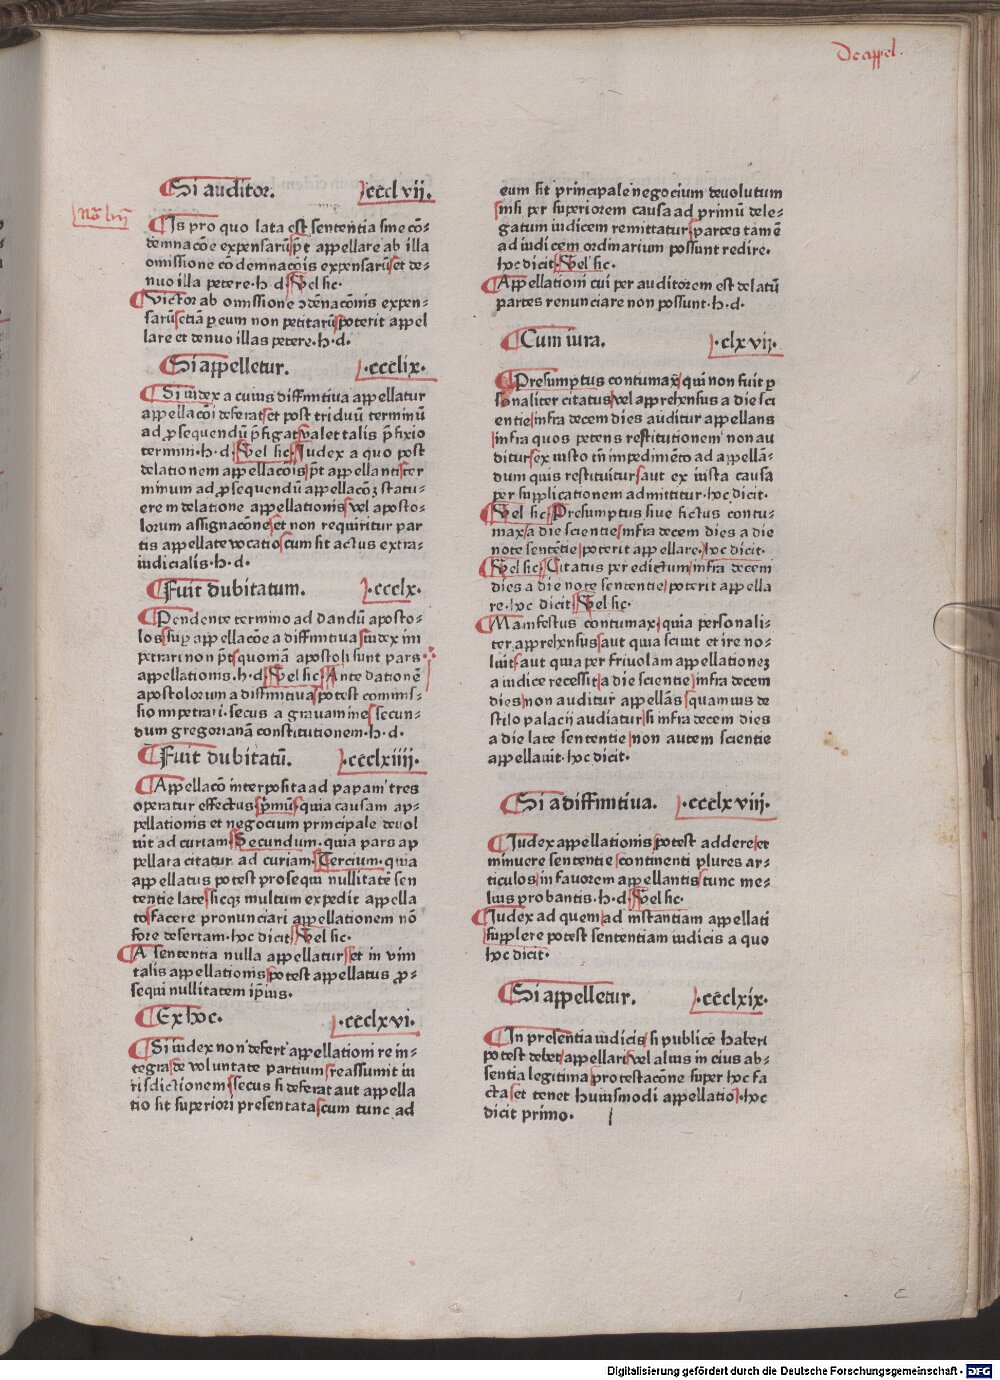 De appel.
Si auditor. ccclvii.
Is pro quo lata est sententia sine cō-
demnacōe expensarū p̄t appellare ab illa
omissione cōdemnacōis expensarū et de-
nuo illa petere·h·d· Vel sic·
Victor ab omissione ↄdēnacōnis expen-
sarū etiā ꝑ eum non petitarū poterit appel
lare et denuo illas petere·h·d·
Si appelletur. ·ccclix·
Si iudex a cuius diffinitiua appellatur
appellacōi deferat et post triduū terminū
ad ꝓsequendū p̄figat valet talis p̄fixio
termini·h·d· Vel sic· Judex a quo post
delationem appellacōis p̄t appellanti ter
minum ad ꝓsequendū appellacōꝫ statu-
ere in delatione appellationis vel aposto-
lorum assignacōne et non requiritur par
tis appellate vocatio cum sit actus extra-
iudicialis·h·d·
Fuit dubitatum. ·ccclx·
Pendente termino ad dandū aposto-
los suꝑ appellacōe a diffinitiua iudex im
petrari non p̄t quoniā apostoli sunt pars
appellationis·h·d· Vel sic· Ante dationē
apostolorum a diffinitiua potest commis-
sio impetrari·secus a grauamine secun-
dum gregorianā constitutionem·h·d·
Fuit dubitatū. ·ccclxiiii·
Appellacō interposita ad papam tres
operatur effectus p̄mus quia causam ap-
pellationis et negocium principale deuol
uit ad curiam Secundum·quia pars ap
pellata citatur ad curiam· Tercium quia
appellatus potest prosequi nullitatē sen
tentie late sicqꝫ multum expedit appella
to facere pronunciari appellationem nō
fore desertam·hoc dicit Vel sic·
A sententia nulla appellatur et in vim
talis appellationis potest appellatus ꝓ-
sequi nullitatem ip̄ius·
Ex hoc. ·ccclxvi·
Si iudex non defert appellationi re in-
tegra de voluntate partium reassumit iu
risdictionem secus si deferat aut appella
tio sit superiori presentata cum tunc ad
eum sit principale negocium deuolutum
nisi per superiorem causa ad primū dele-
gatum iudicem remittatur partes tamē
ad iudicem ordinarium possunt redire·
hoc dicit Vel sic·
Appellationi cui per auditorem est delatū
partes renunciare non possunt·h·d·
Cum iura. ·clxvii·
Presumptus contumax qui non fuit ꝑ
sonaliter citatus vel apprehensus a die sci
entie infra decem dies auditur appellans
infra quos petens restitutionem non au
ditur ex iusto tn̄ impedimēto ad appellā-
dum quis restituitur aut ex iusta causa
per supplicationem admittitur·hoc dicit·
Vel sic· Presumptus siue fictus contu-
max a die scientie infra decem dies a die
note sentētie poterit appellare·hoc dicit·
Vel sic· Citatus per edictum infra decem
dies a die note sententie poterit appella
re·hoc dicit Vel sic·
Manifestus contumax quia personali-
ter apprehensus aut quia sciuit et ire no-
luit aut quia per friuolam appellationeꝫ
a iudice recessit a die scientie infra decem
dies non auditur appellās quamuis de
stilo palacij audiatur si infra decem dies
a die late sententie non autem scientie
appellauit·hoc dicit·
Si a diffinitiua. ·ccclxviii·
Judex appellationis potest addere et
minuere sententie continenti plures ar-
ticulos in fauorem appellantis tunc me-
lius probantis·h·d· Vel sic·
Judex ad quem ad instantiam appellati
supplere potest sententiam iudicis a quo
hoc dicit·
Si appelletur. ·ccclxix·
In presentia iudicis si publice haberi
potest debet appellari vel alius in eius ab-
sentia legitima protestacōne super hoc fa
cta et tenet huiusmodi appellatio·hoc
dicit primo·
c
Digitalisierung gefördert durch die Deutsche Forschungsgemeinschaft · DFG